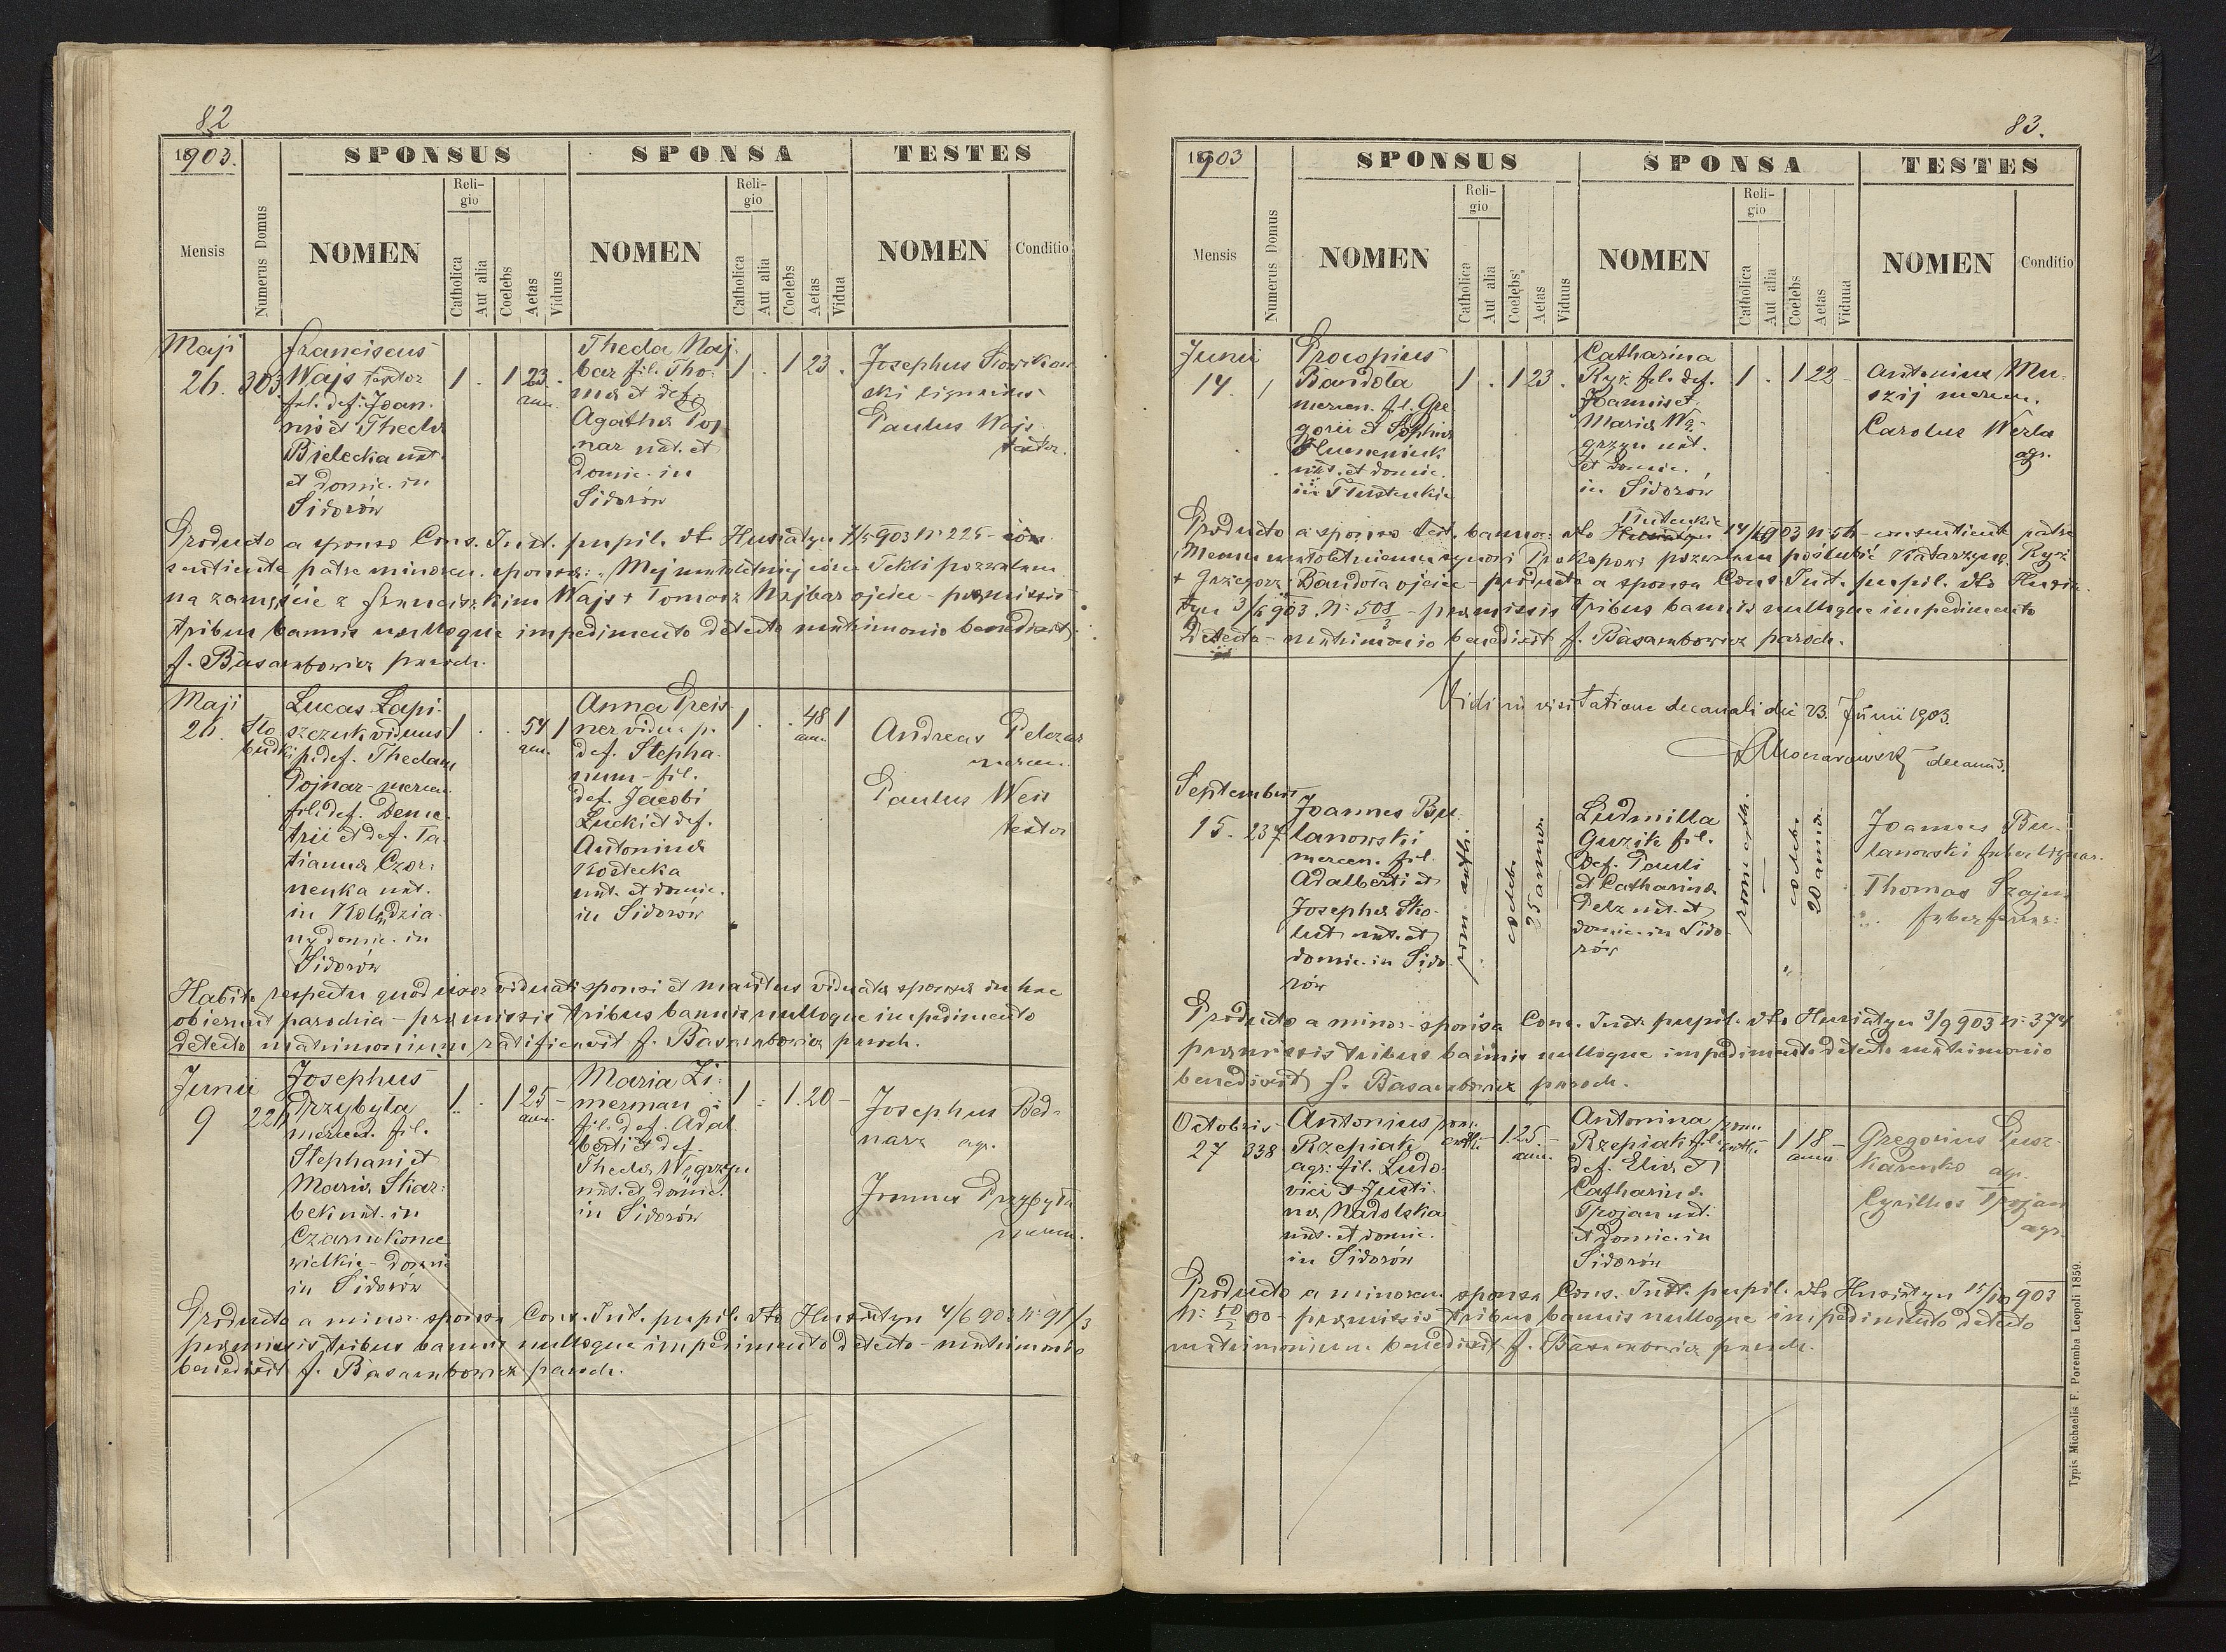 82
1903.
SPONSUS
SPONSA
TESTES
Mensis
Numerus Domus
NOMEN
Religio
Catholica
Aut alia
Coelebs
Aetas
Viduus
NOMEN
Religio
Catholica
Aut alia
Coelebs
Aetas
Vidua
NOMEN
Conditio
Maji
26. 303
Franciscus
Wajs textor
fil. def. Joan-
nis et Thecla
Bielecka nat.
et domic. in
Sidorów
1 . 1 23 .
ann.
Thecla Naj-
bar fil. Tho-
ma et def.
Agatha Poj-
nar nat. et
domic. in
Sidorów
1 . 1 23 .
Josephus
Paulus Wajs
textor.
Producto a sponso Cons. Jud. pupil. dto Husiatyn 7/5 903 N 225 - con
sentiente patre minoren. sponsa: Mej małoletniej córce Tekli pozwalam
na zamęście z Franciszkiem Wajs + Tomasz Najbar ojciec - præmissis
tribus bannis nulloque impedimento detecto matrimonio benedixit
f. Basarabowicz paroch.
Maji
26. Sto
budki
Lucas Łapi-
szczuk viduus
p. def. Theclam
Pojnar - mercen.
fil. def. Deme-
trii et def. Ta-
tianna Czor-
nenka nat.
in Kolędzia-
ny domic. in
Sidorów
1 . . 54 1
ann.
Anna Preis
ner vidua p.
def. Stepha-
num - fil.
def. Jacobi
Łucki et def.
Antonina
Kostecka
nat. et domic.
in Sidorów
1 . . 48 1
ann.
Andreas Pelczar
mercen.
Paulus Weis
textor
Habito respectu quod uxor viduati sponsi et maritus viduata sponsa in hac
obierunt parochia - præmissis tribus bannis nulloque impedimento
detecto matrimonium ratificavit f. Basarabowicz paroch.
Junii
9
Josephus
Przybyła
mercen. fil.
Stephani et
Maria Skar-
bek nat. in
Czarnokonce
wielkie - domic.
in Sidorów
1 . 1 25 -
ann.
Maria Zi-
merman
fil. def. Adal
berti et def.
Thecla Węgrzyn
nat. et domic.
in Sidorów
1 - 1. 20 -
Josephus Bed-
narz agr.
Joannes Przybyła
mercen.
Producto a minor. sponsa Cons. Jud. pupil. dto Husiatyn 4/6 903 N 91/3
præmissis tribus bannis nulloque impedimento detecto - matrimonio
benedixit f. Basarabowicz paroch.
83.
1903
SPONSUS
SPONSA
TESTES
Mensis
Numerus Domus
NOMEN
Religio
Catholica
Aut alia
Coelebs
Aetas
Viduus
NOMEN
Religio
Catholica
Aut alia
Coelebs
Aetas
Vidua
NOMEN
Conditio
Junii
14. 1
Procopius
Bandoła
mercen. fil. Gre
gorii et Sophia
nat. et domic.
1 . 1 23 .
Catharina
Ryż fil. def.
Joannis et
Maria Wę-
grzyn nat.
et domic.
in Sidorów
1 . 1 22 -
Antonius Mu-
szij mercen.
Carolus Werla
agr.
Producto a sponso test. bannor. dto 14/6 903 N 56 - consentiente patre
Memu małoletniemu synowi Prokopowi pozwalam poślubić Katarzynę Ryż
+ Grzegorz Bandoła ojciec - producto a sponsa Cons. Jud. pupil. dto Husia
tyn 3/6 903 N: 508/3 - præmissis tribus bannis nulloque impedimento
detecto - matrimonio benedixit f. Basarabowicz paroch.
Vidi in visitatione decanali die 23. Junii 1903.
decanus.
Septembris
15. 237
Joannes Bu-
lanowski
mercen. fil.
Adalberti et
Josepha Sko-
lut nat. et
domic. in Sido-
rów
rom. cath.
coeleb.
25 anno.
Ludmilla
Guzik fil.
def. Pauli
et Catharina
Pelz nat. et
domic. in Sido-
rów
rom. cath.
coeleb.
20 anno.
Joannes Bu-
lanowski faber lignar.
Thomas Szajn
faber ferrar.
Producto a minor. sponsa Cons. Jud. pupil. dto Husiatyn 3/9 903 N. 374
præmissis tribus bannis nulloque impedimento detecto matrimonio
benedixit f. Basarabowicz paroch.
Octobris
27 338
Antonius
Rzepiak
agr. fil. Ludo-
vici et Justi-
na Nadolska
nat. et domic.
in Sidorów
rom.
cath. - 1 25. -
ann.
Antonina
Rzepiak fil.
def. Elia et
Catharina
Trojan nat.
et domic. in
Sidorów
rom.
cath. - 1 18 -
ann.
Gregorius Pusz-
karenko agr.
Cyrillus Trojan
agr.
Producto a minoren. sponsa Cons. Jud. pupil. dto Husiatyn 15/10 903
præmissis tribus bannis nulloque impedimento detecto
matrimonium benedixit f. Basarabowicz paroch.
Typis Michaelis F. Poremba Leopoli 1859.